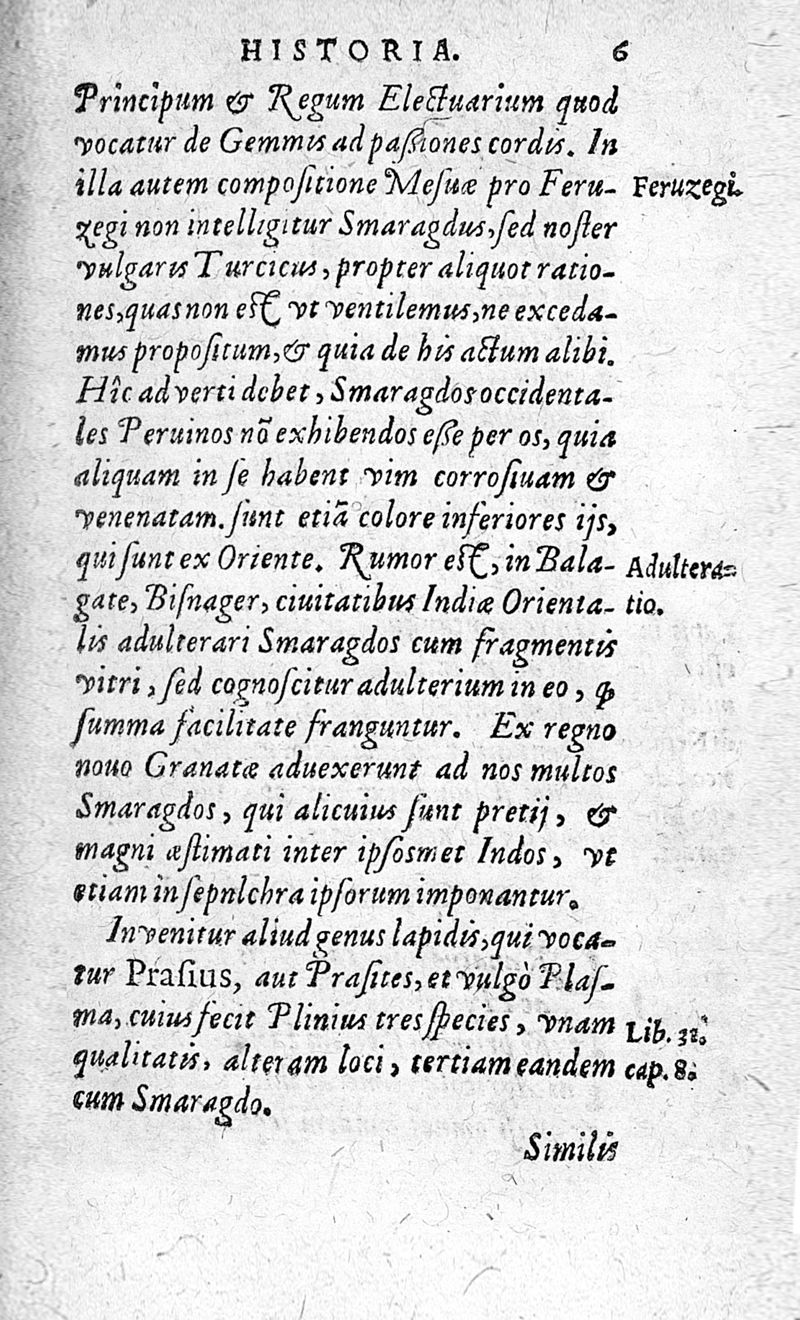 HISTORIA. 6
Principum & Regum Electuarium quod
vocatur de Gemmis ad paſſiones cordis. In
illa autem compoſitione Meſuæ pro Feru- Feruzegi.
zegi non intelligitur Smaragdus, ſed noſter
vulgaris Turcicus, propter aliquot ratio-
nes, quas non eſt vt ventilemus, ne exceda-
mus propoſitum, & quia de his actum alibi.
Hîc adverti debet, Smaragdos occidenta-
les Peruinos nõ exhibendos eſſe per os, quia
aliquam in ſe habent vim corroſiuam &
venenatam. ſunt etiã colore inferiores ijs,
qui ſunt ex Oriente. Rumor eſt, in Bala- Adultera-
gate, Biſnager, ciuitatibus Indiæ Orienta- tio.
lis adulterari Smaragdos cum fragmentis
vitri, ſed cognoſcitur adulterium in eo, ꝙ
ſumma facilitate franguntur. Ex regno
nouo Granatæ aduexerunt ad nos multos
Smaragdos, qui alicuius ſunt pretij, &
magni æſtimati inter ipſosmet Indos, vt
etiam in ſepnlchra ipſorum imponantur.
Invenitur aliud genus lapidis, qui voca-
tur Praſius, aut Praſites, et vulgò Plaſ-
ma, cuius fecit Plinius tres ſpecies, vnam Lib. 31.
qualitatis, alteram loci, tertiam eandem cap. 8.
cum Smaragdo.
Similis